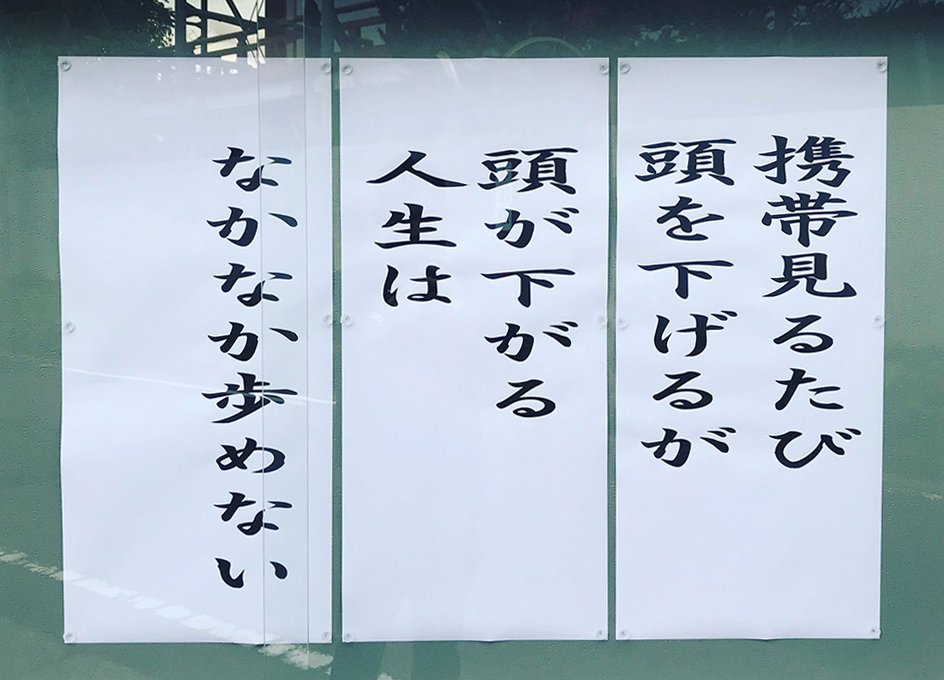 携帯見るたび
頭を下げるが
頭が下がる
人生は
なかなか歩めない